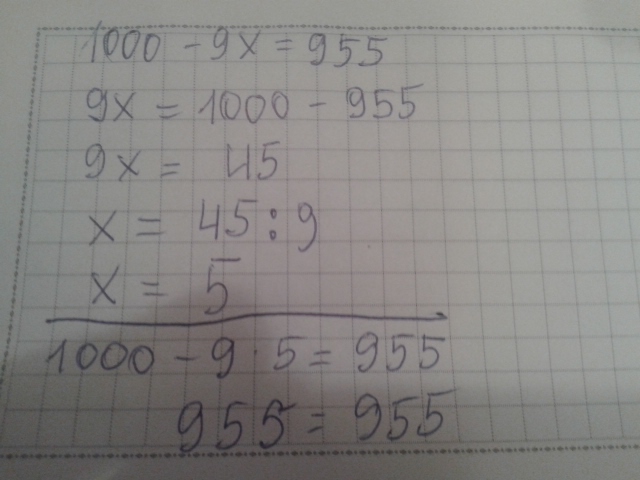 1000 - 9x = 955
9x = 1000 - 955
9x = 45
x = 45 : 9
x = 5
1000 - 9 · 5 = 955
955 = 955